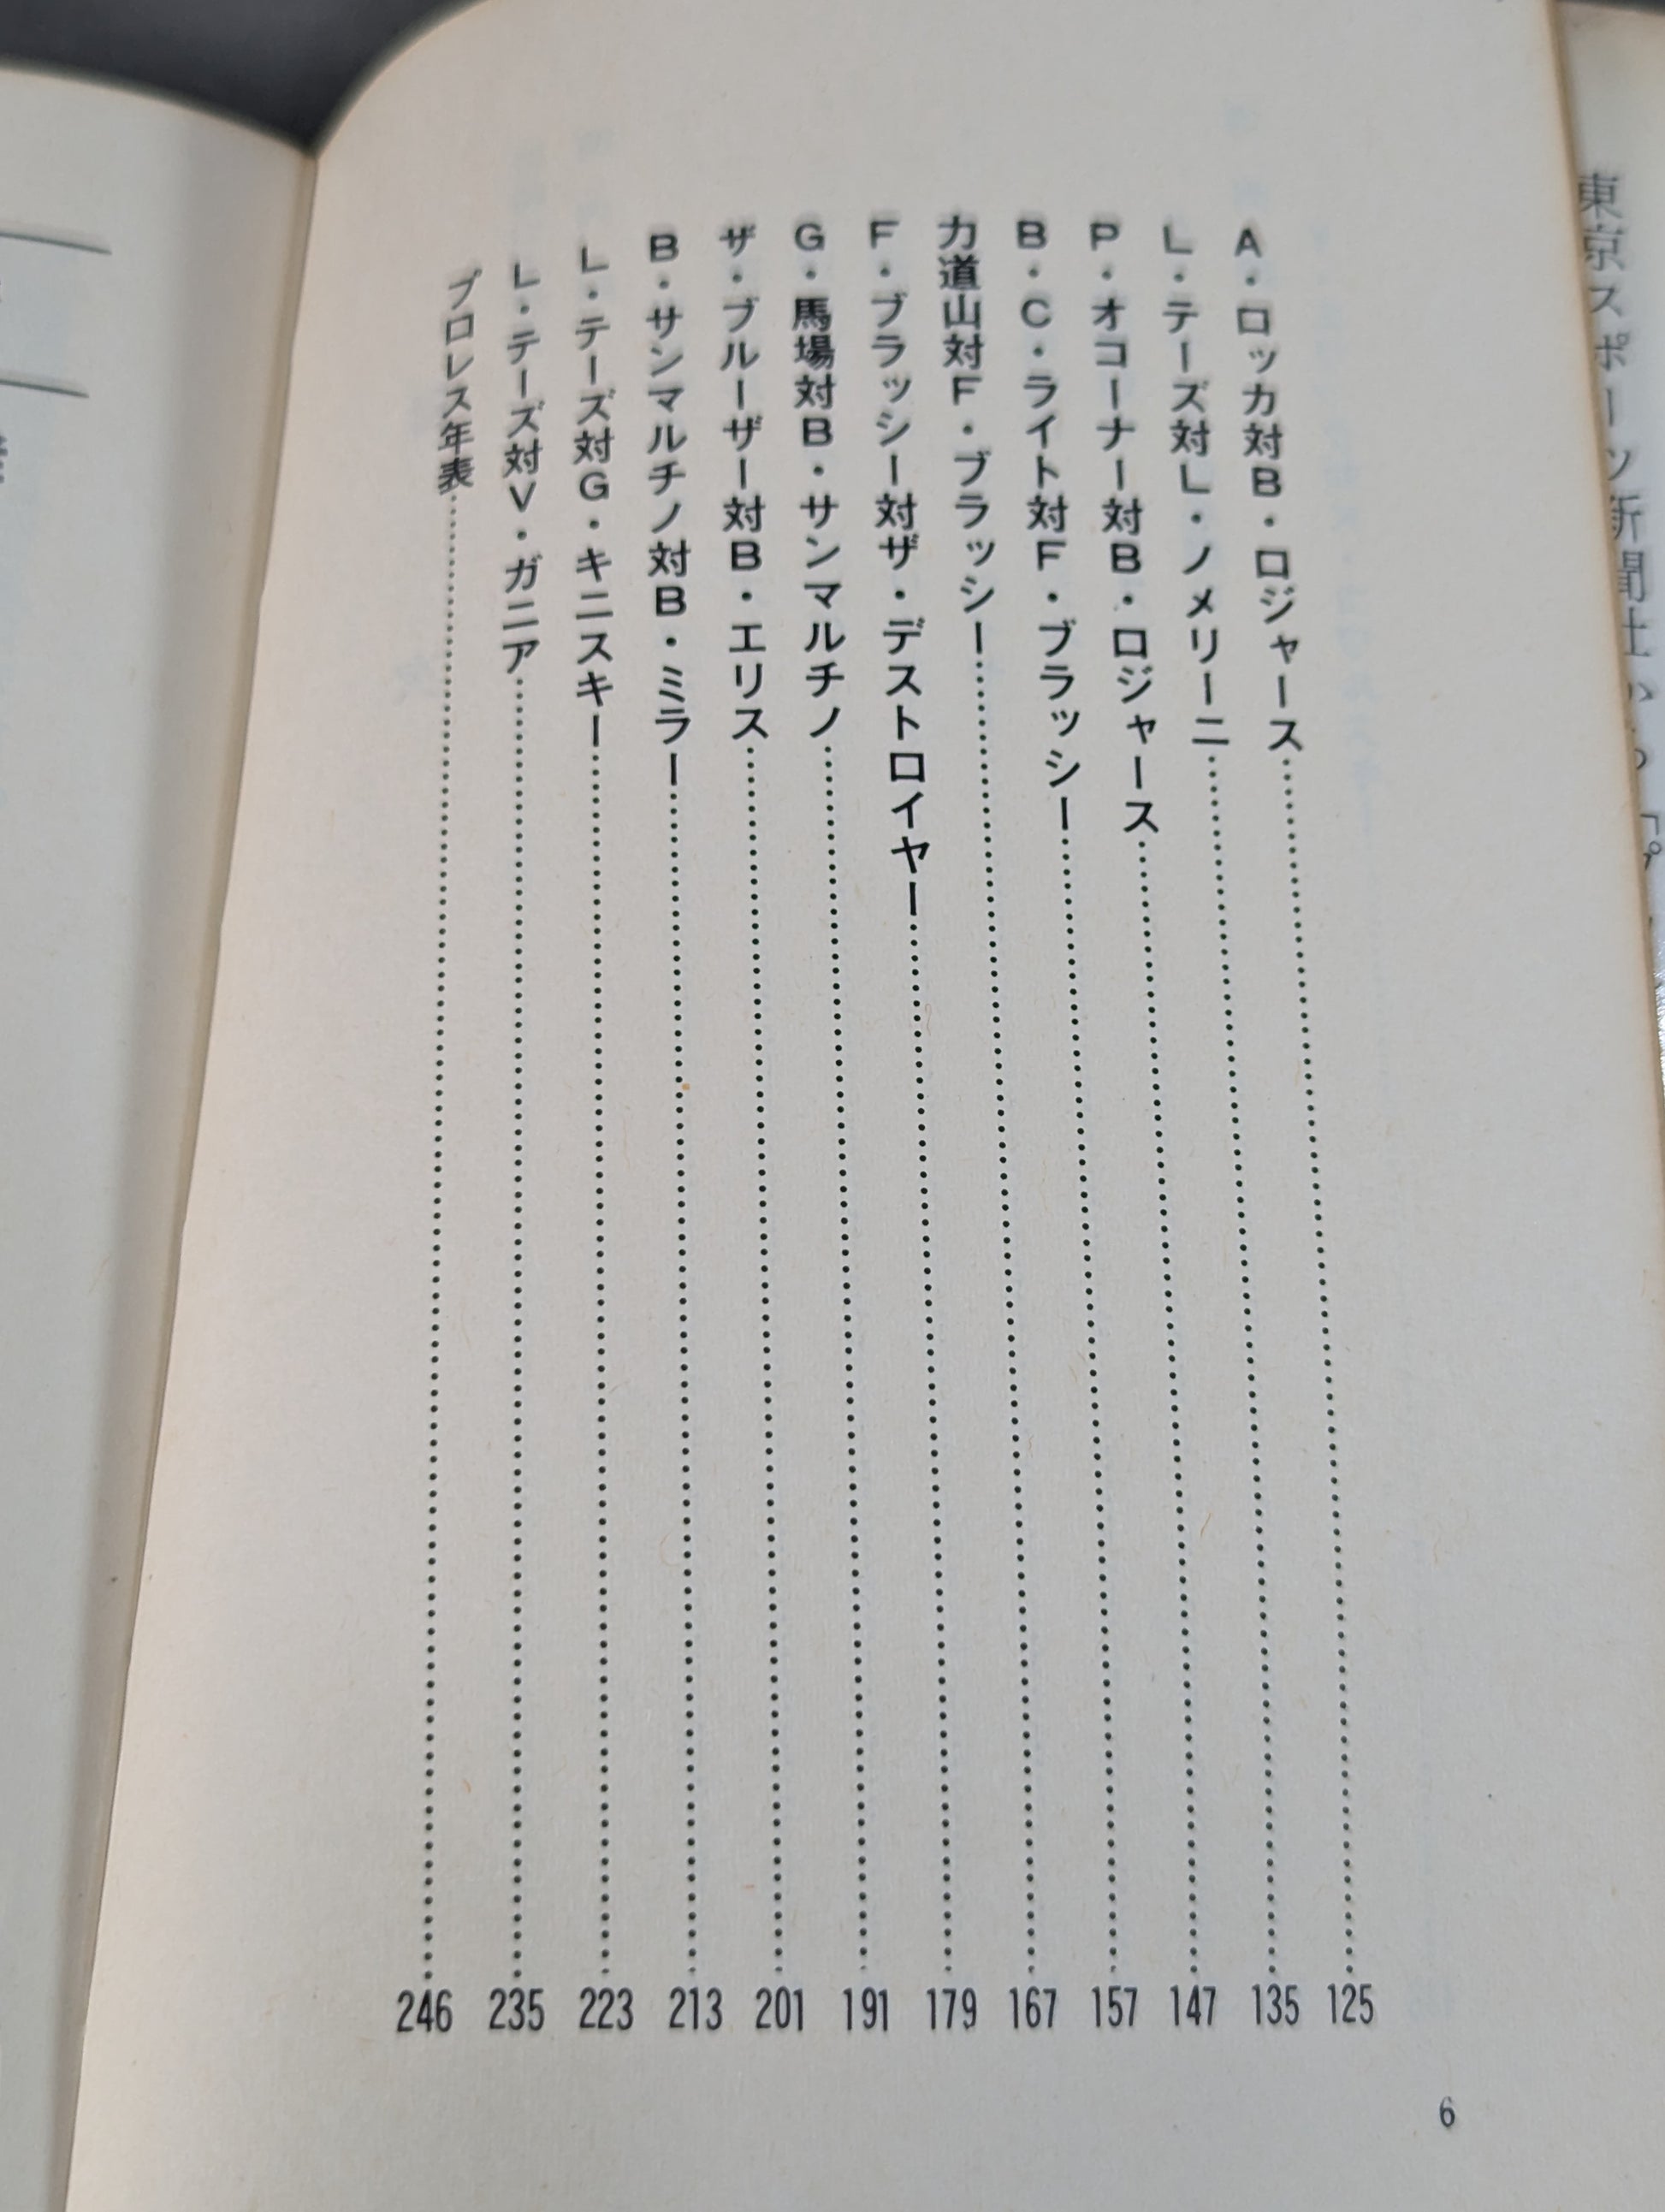 A・ロッカ対B・ロジャース……125
L・テーズ対L・ノメリーニ……135
P・オコーナー対B・ロジャース……147
B・C・ライト対F・ブラッシー……157
力道山対F・ブラッシー……167
F・ブラッシー対ザ・デストロイヤー……179
G・馬場対B・サンマルチノ……191
ザ・ブルーザー対B・エリス……201
B・サンマルチノ対B・ミラー……213
L・テーズ対G・キニスキー……223
L・テーズ対V・ガニア……235
プロレス年表……246
6
東京スポーツ新聞社から「プ